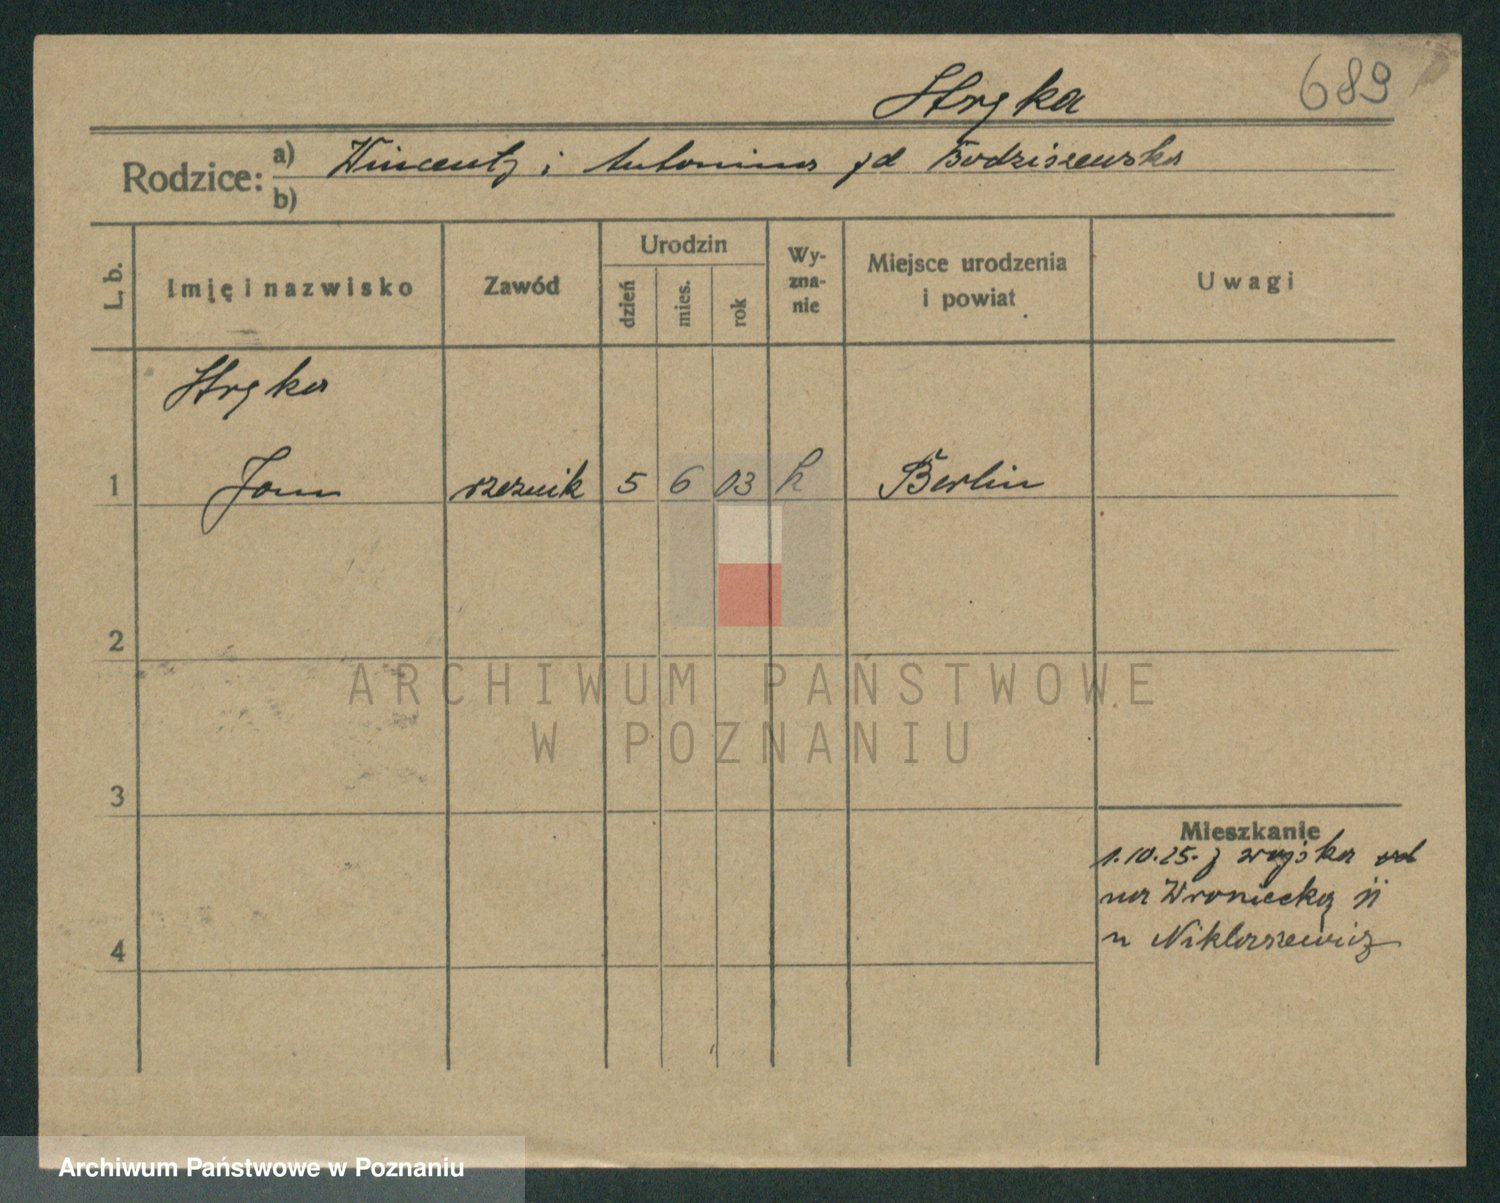 Stryka
689
Rodzice: a) Wincenty i Antonina
b)
L. b.
Imię i nazwisko
Zawód
Urodzin
dzień
mies.
rok
Wy-
zna-
nie
Miejsce urodzenia
i powiat
Uwagi
Stryka
1 Jan rzeznik 5 6 03 k Berlin
2
3
4
Mieszkanie
1.10.25. z wojska
na Wroniecką
u Niklasiewicz
ARCHIWUM PAŃSTWOWE
W POZNANIU
Archiwum Państwowe w Poznaniu